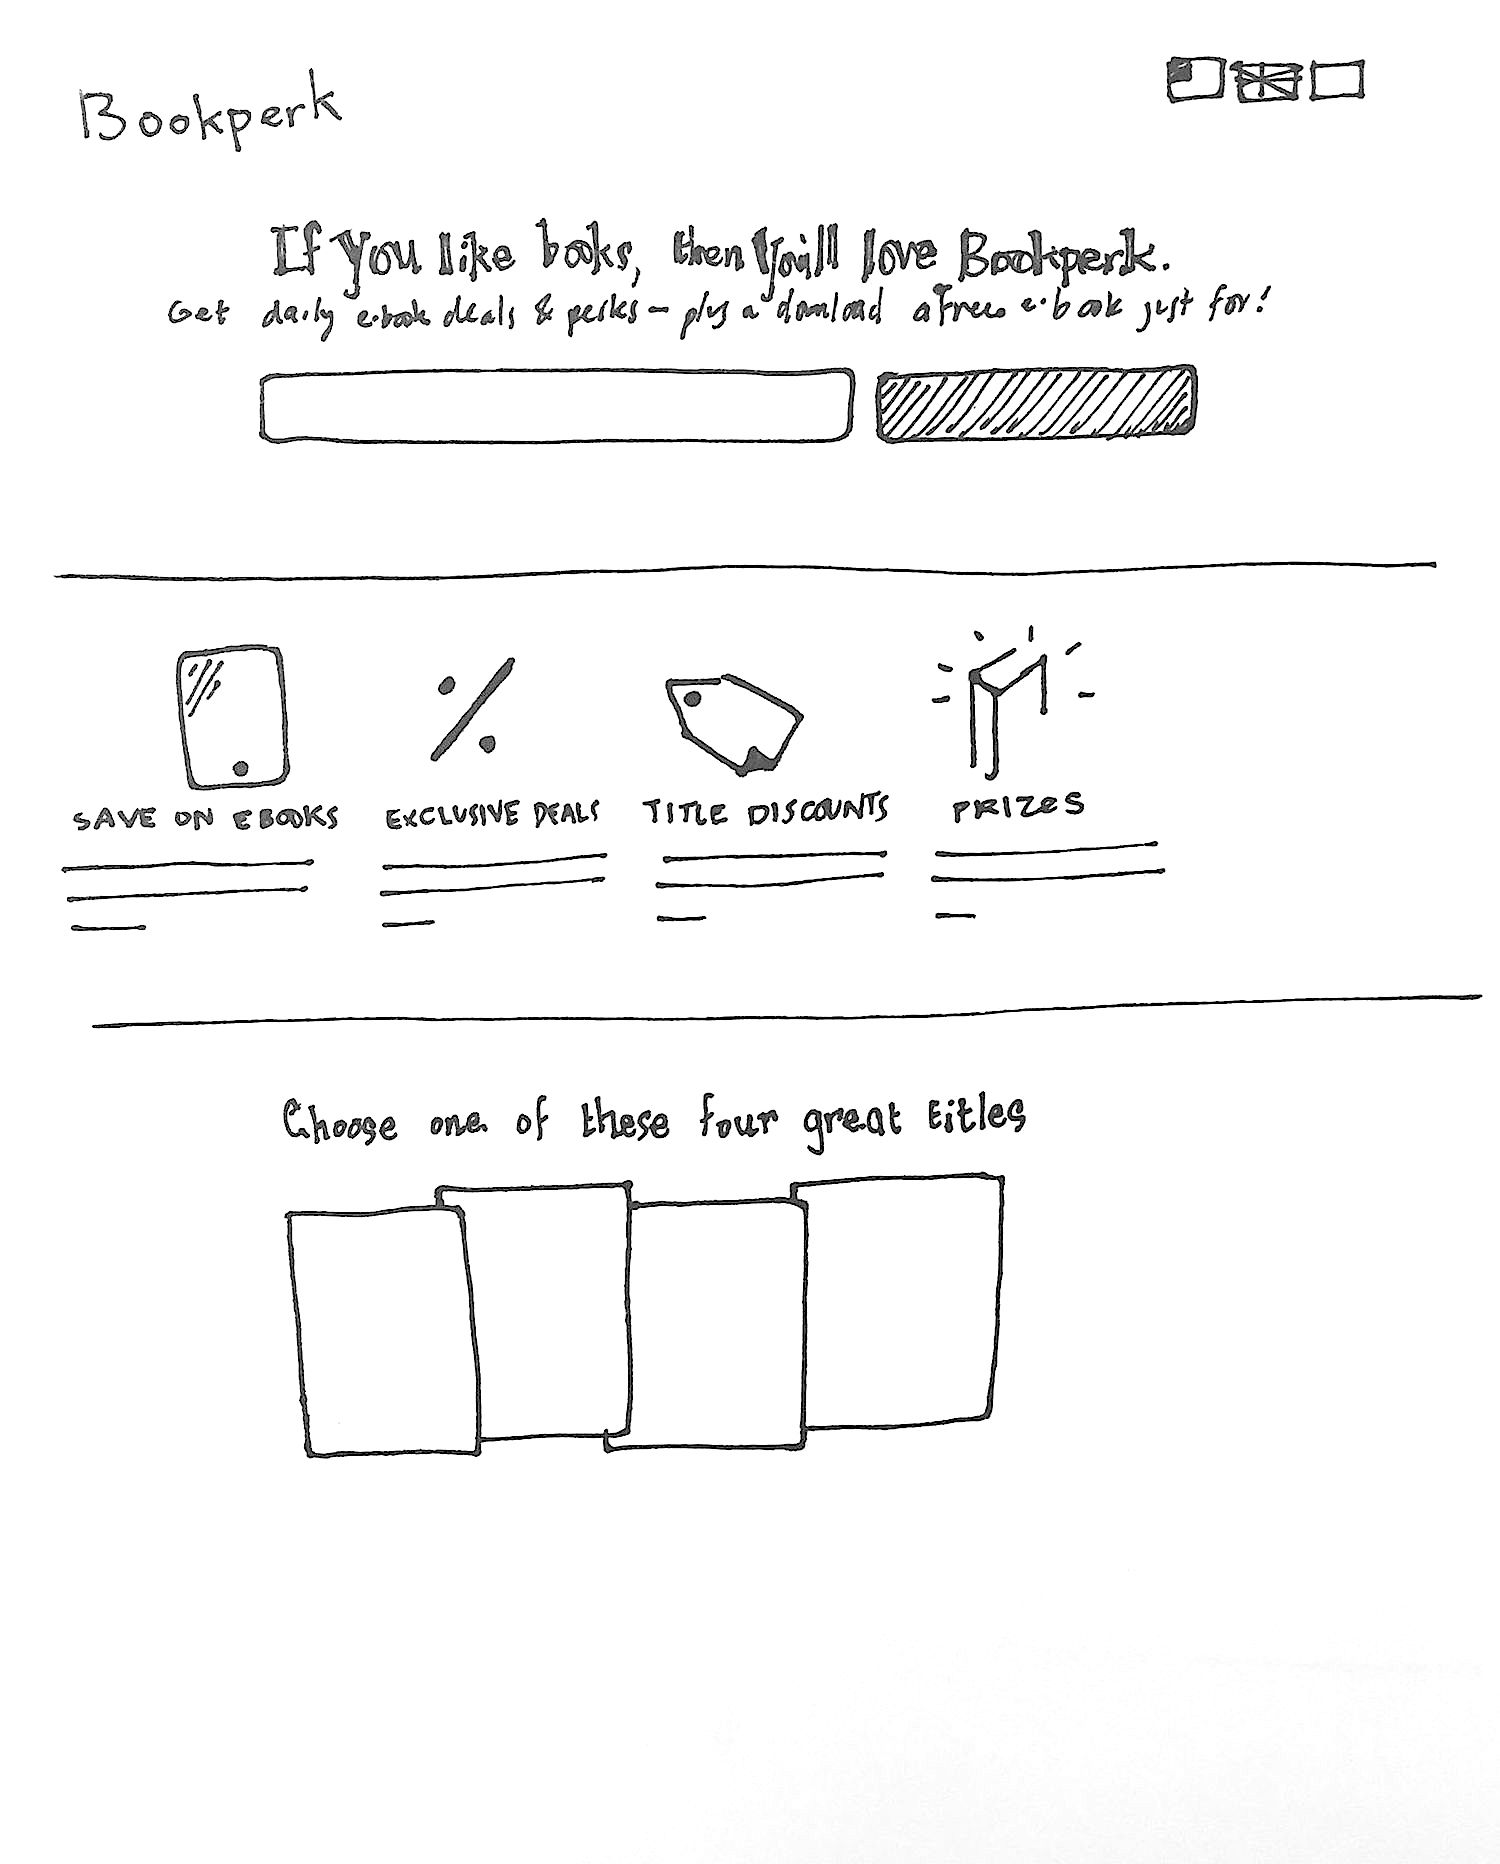 Bookperk
If you like books, then you'll love Bookperk.
Get daily e-book deals & perks - plus a download a free e-book just for!
SAVE ON EBOOKS EXCLUSIVE DEALS TITLE DISCOUNTS PRIZES
Choose one of these four great titles